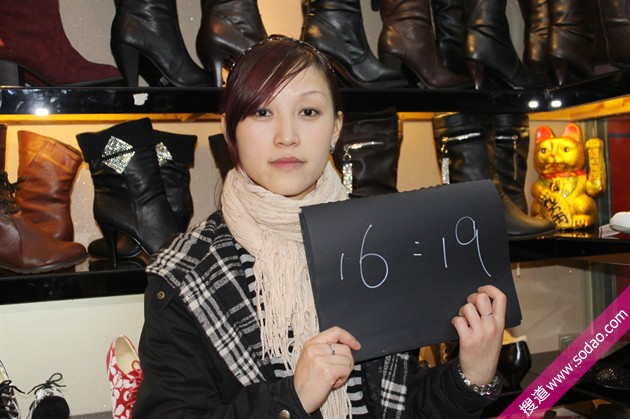 16:19
搜道 www.sodao.com